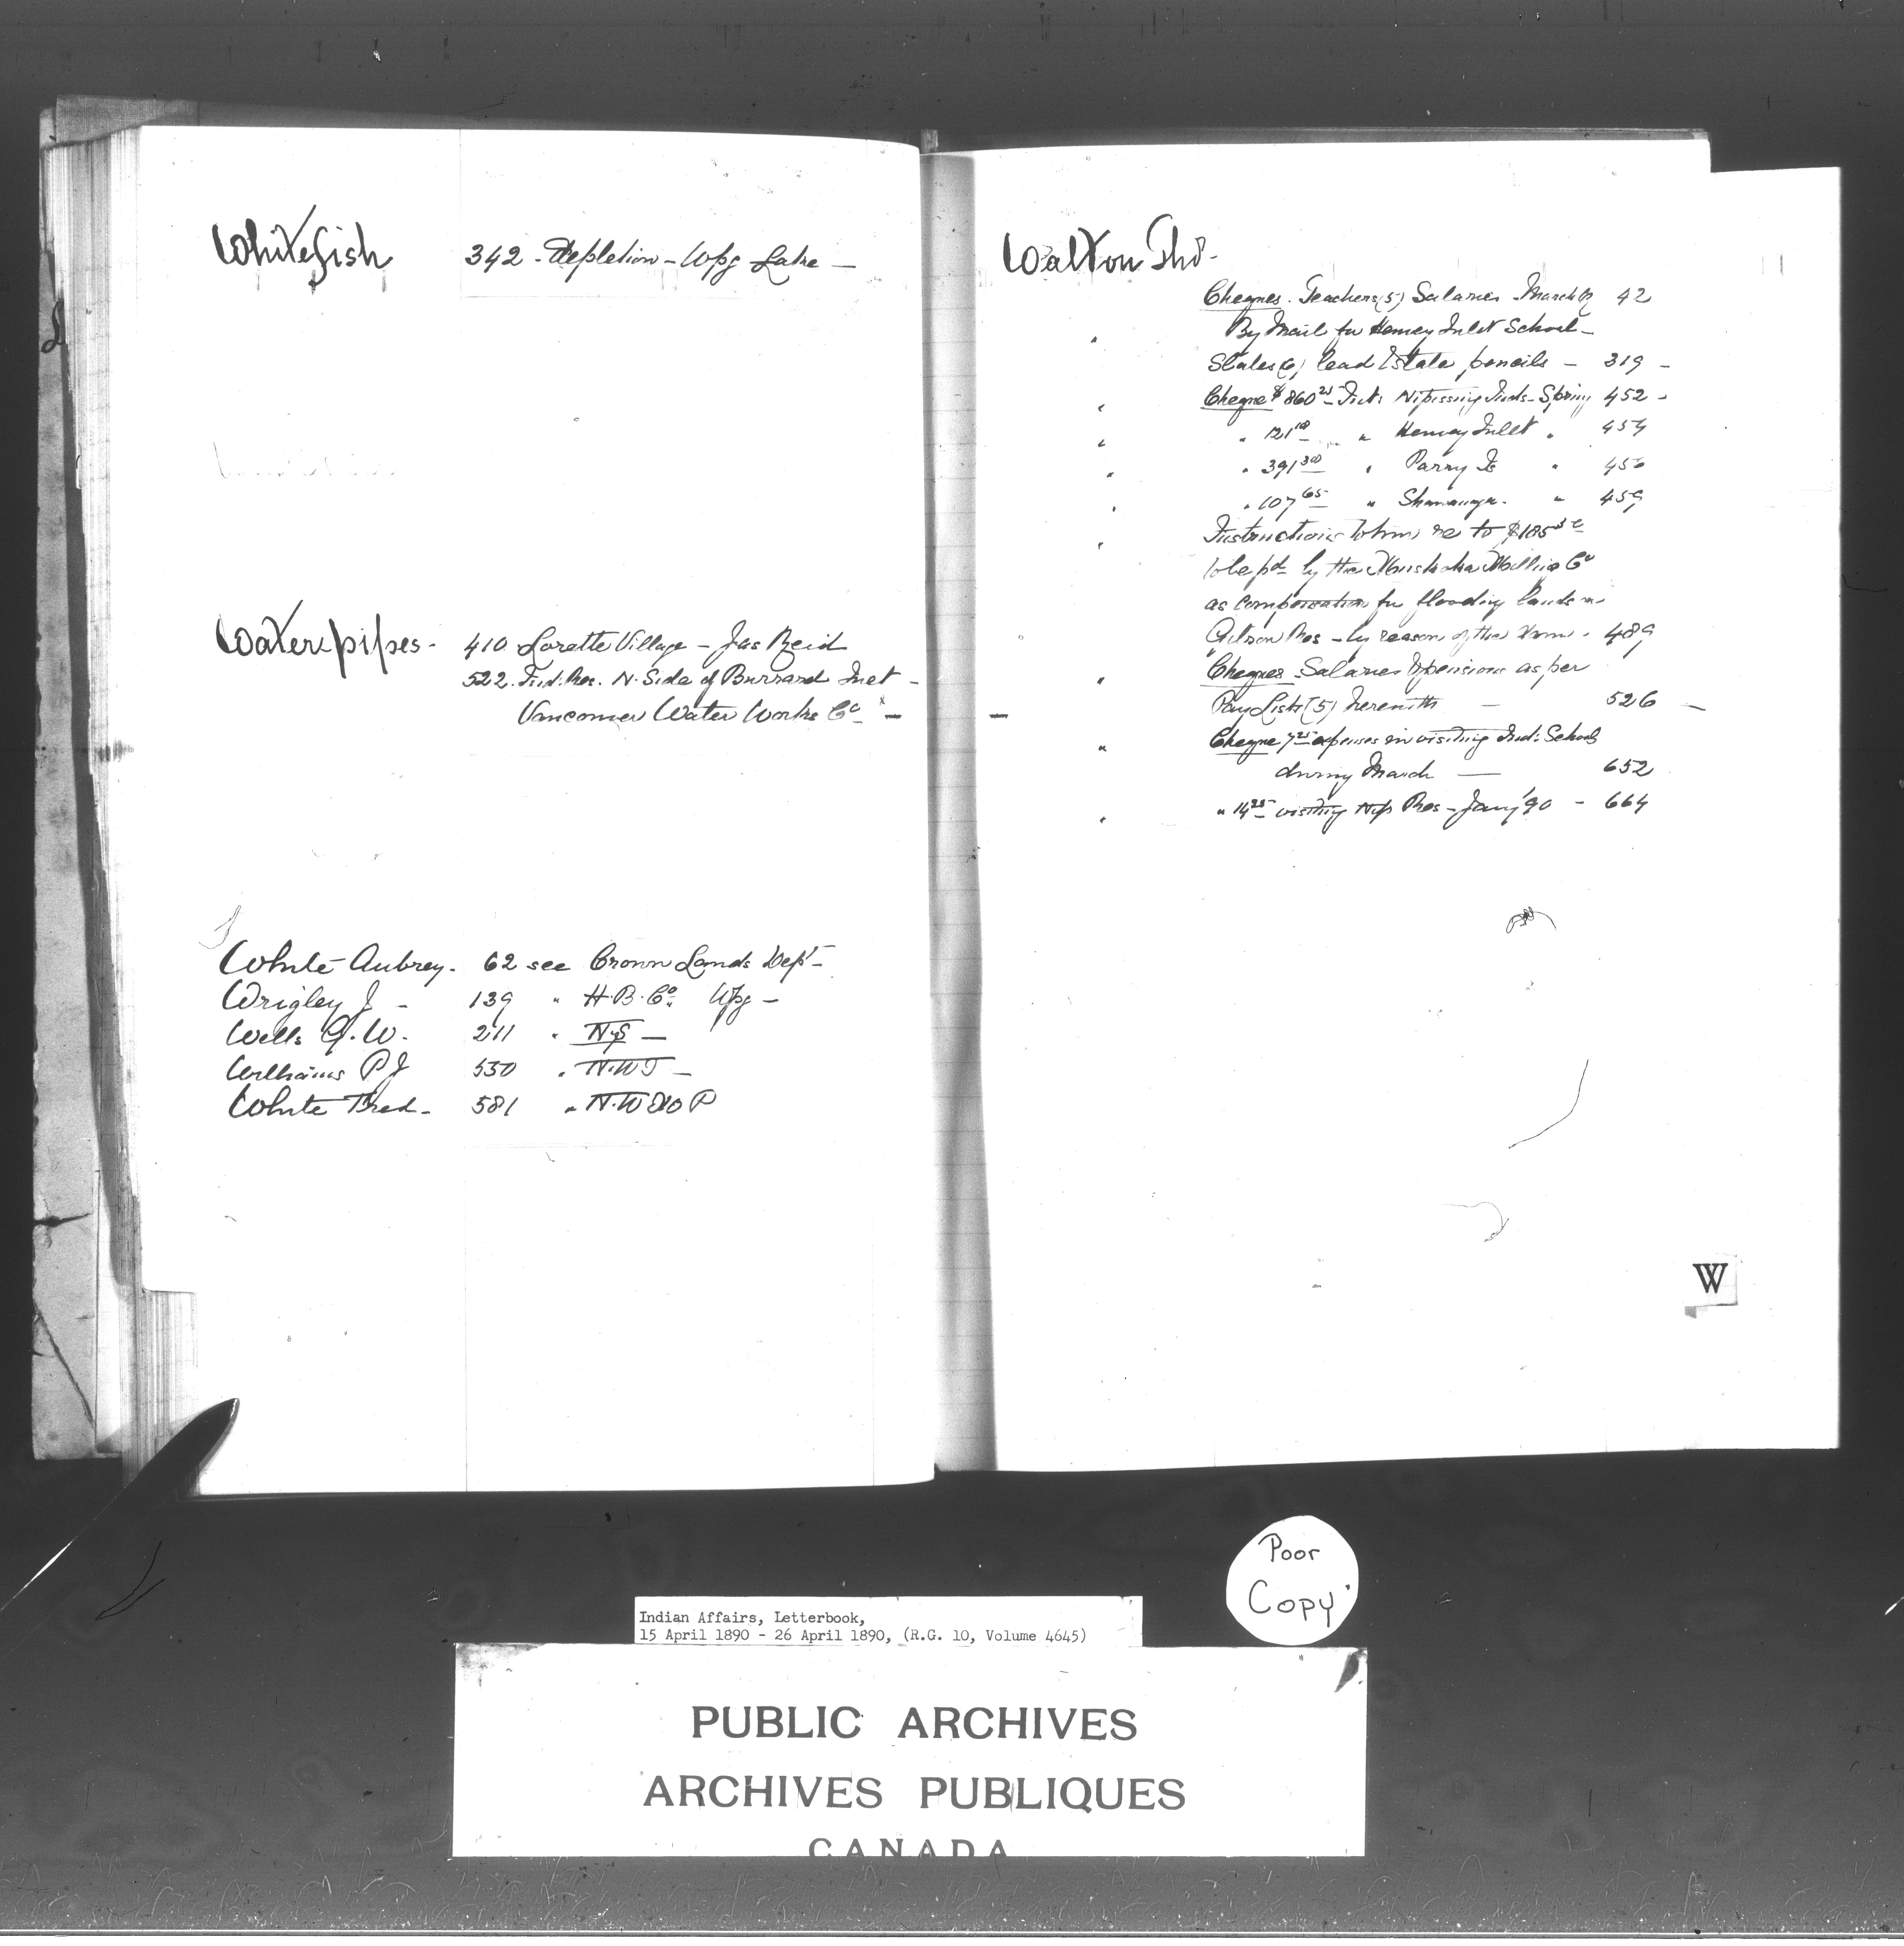 Whitefish 342 - depletion - Wpg Lake -
Waterpipes - 410 Lorette Village - Jas Reid
522. Ind. Res. N. Side of Burrard Inlet -
Vancouver Water Works Co -
White Aubrey. 62 see Crown Lands Dept -
Wrigley J - 139 " H. B. Co. Wpg -
Wells G. W. 211 "
Williams P J 550 " N. W. T -
White Fred - 581 " N. W M P
Walton Tho -
Cheques. Teachers (5) Salaries - March 42
By Mail for Henvey Inlet School -
Slates (6) lead & slate pencils - 319 -
" Cheque $860 Ints Nipissing Inds - Spring 452 -
" " 121 " Henvey Inlet " 454
" " 391 " Parry Is " 456
" " 107 65 " Shawanaga - " 459
" Instructions to him re to $185
to be pd by the Muskoka Milling Co
as compensation for flooding lands on
Gibson Res - by reason of the dam - 489
" Cheques Salaries & pensions as per
Pay Lists (5) herewith - 526 -
" Cheque 7 25 expenses in visiting Ind: Schools
during March - 652
" " 14 25 visiting Nip Res - Jany '90 - 664
W
Poor
Copy
Indian Affairs, Letterbook,
15 April 1890 - 26 April 1890, (R.G. 10, Volume 4645)
PUBLIC ARCHIVES
ARCHIVES PUBLIQUES
CANADA